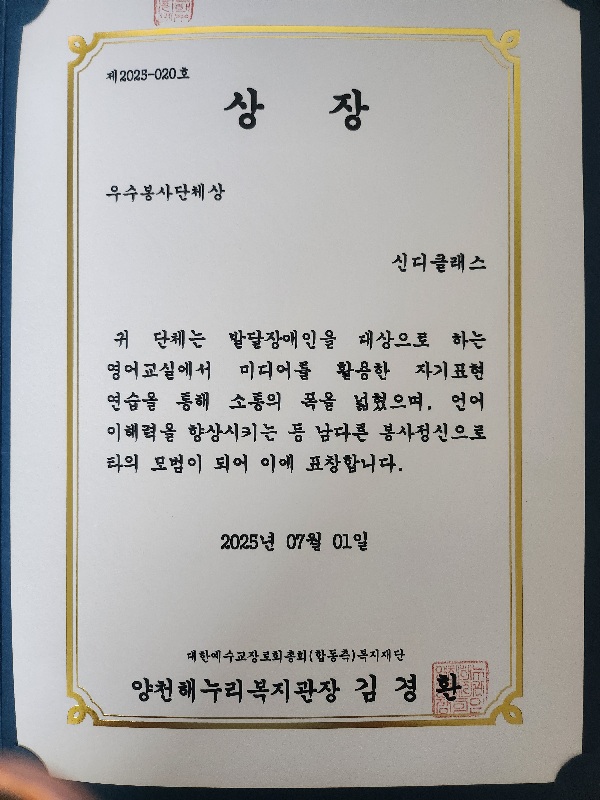 제2025-020호
상 장
우수봉사단체상
신디클래스
귀 단체는 발달장애인을 대상으로 하는
영어교실에서 미디어를 활용한 자기표현
연습을 통해 소통의 폭을 넓혔으며, 언어
이해력을 향상시키는 등 남다른 봉사정신으로
타의 모범이 되어 이에 표창합니다.
2025년 07월 01일
대한예수교장로회총회(합동측)복지재단
양천해누리복지관장 김 경 환